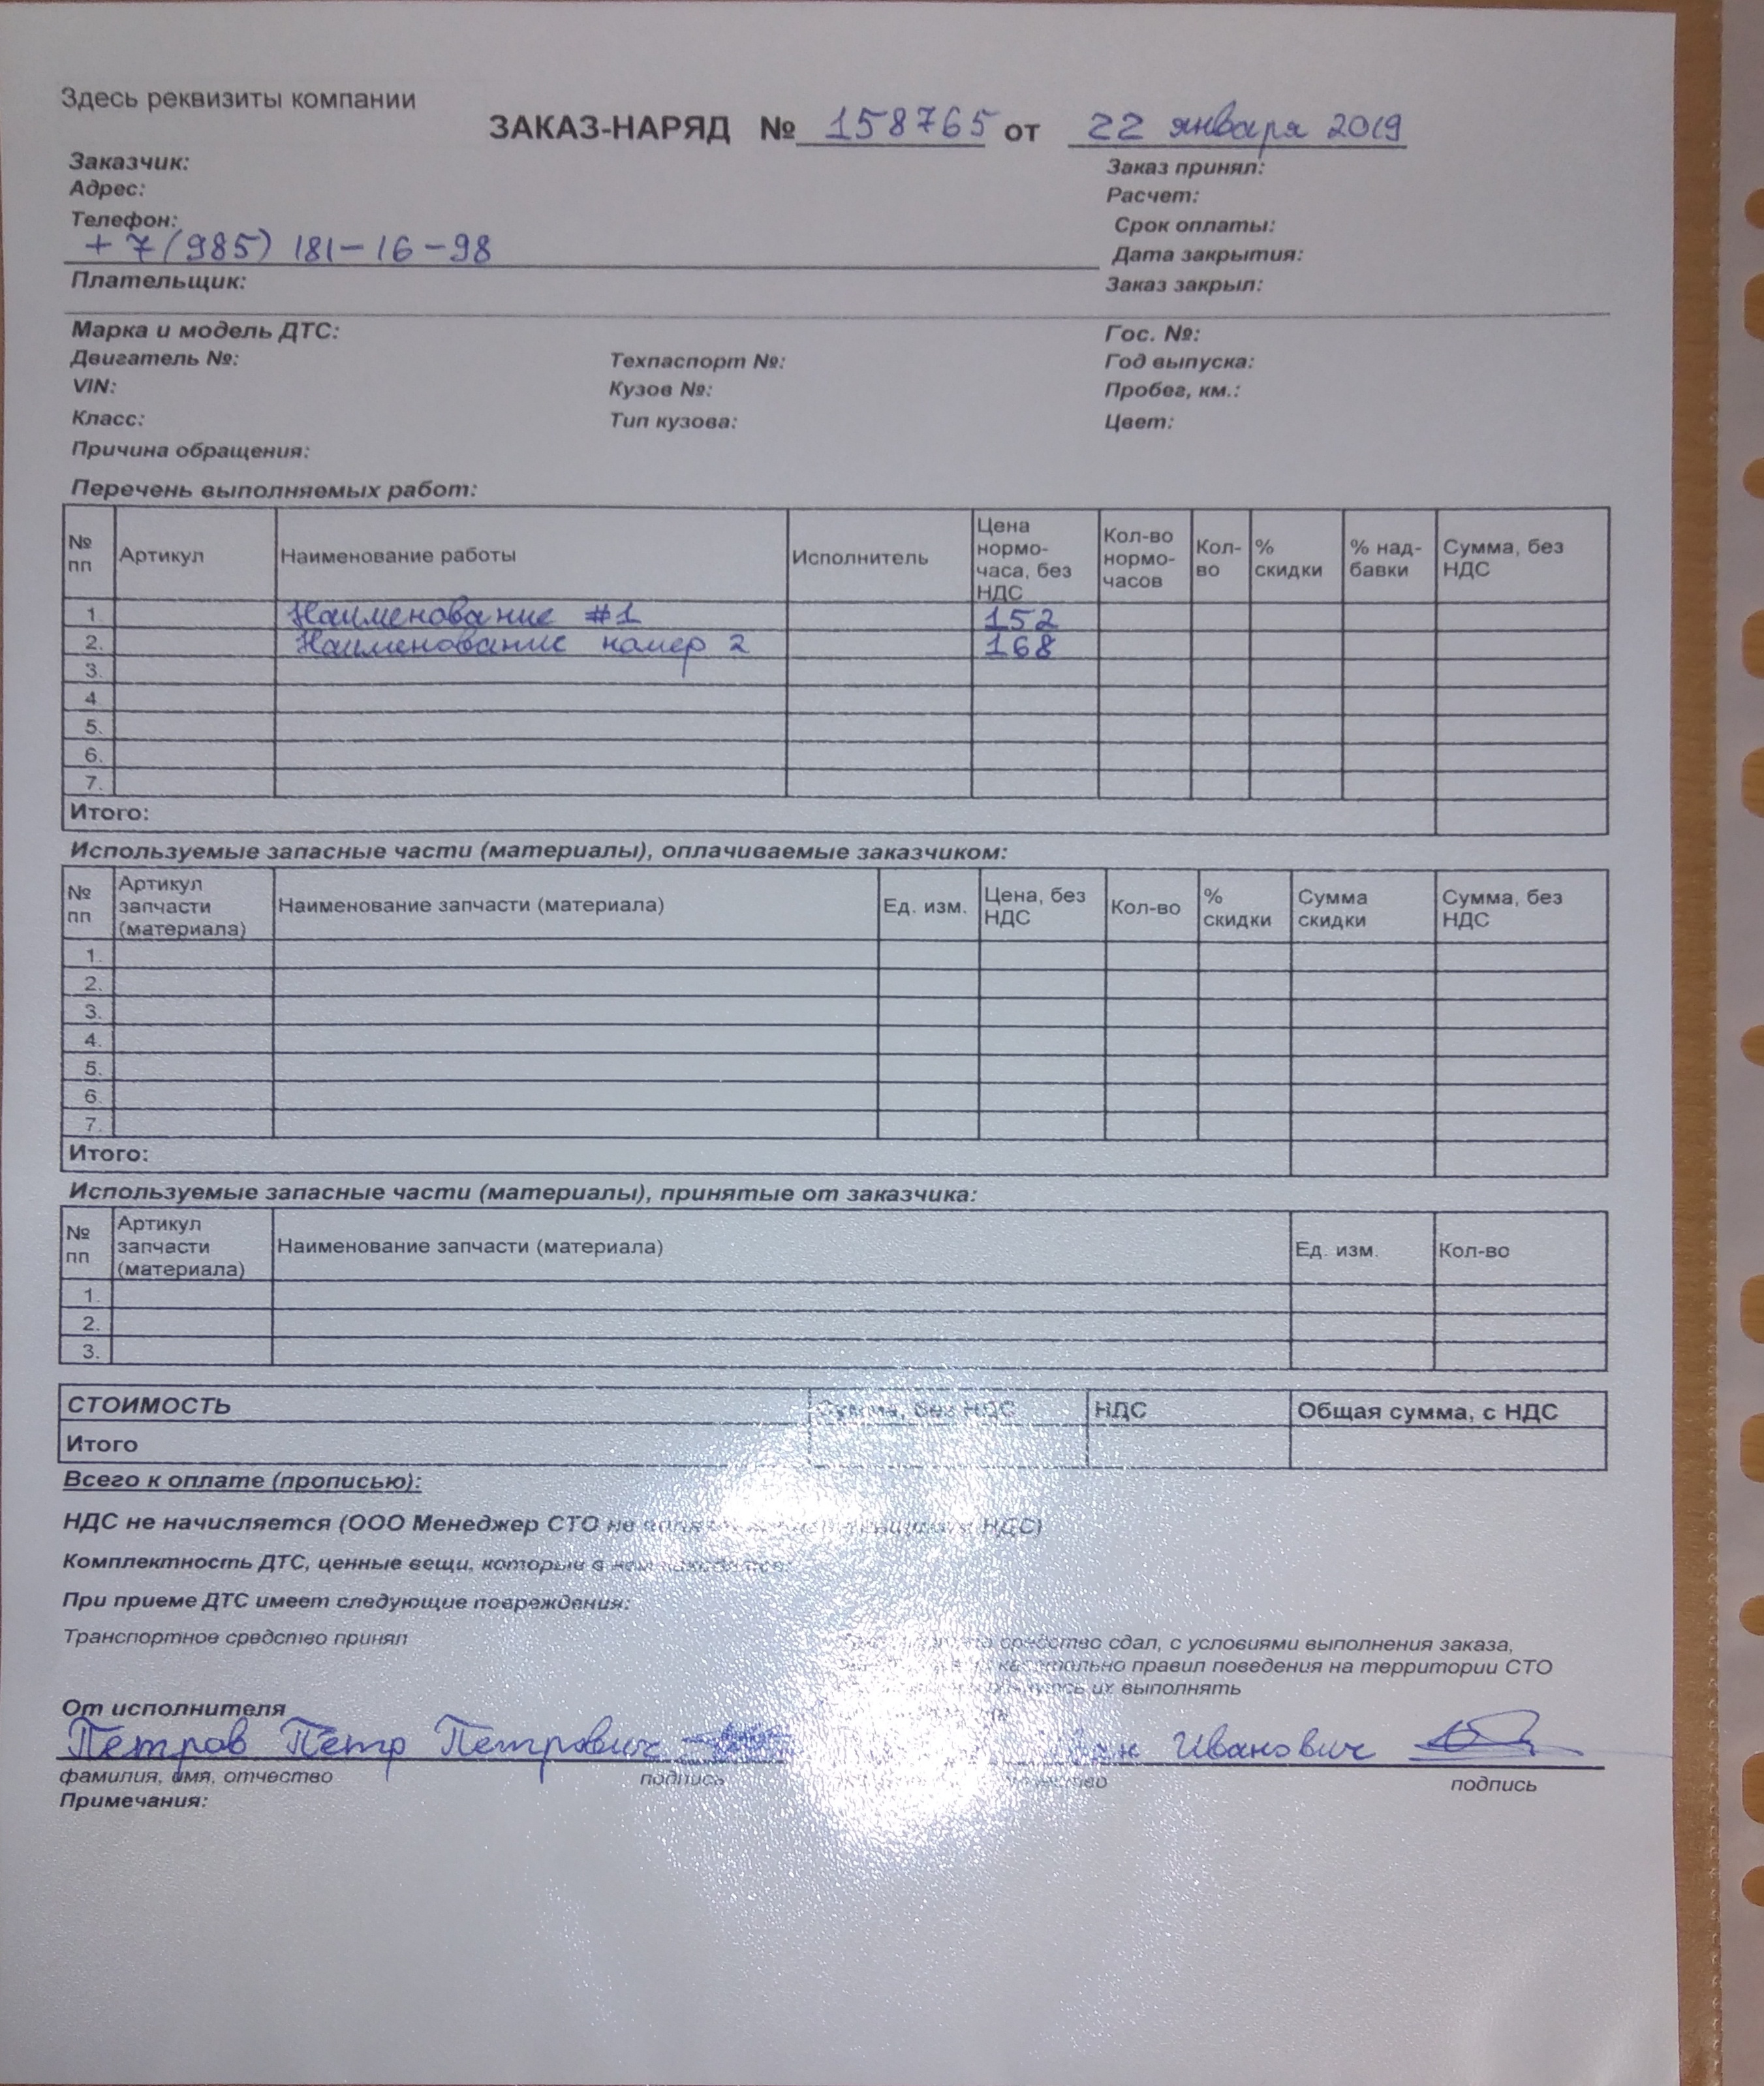 Здесь реквизиты компании
ЗАКАЗ-НАРЯД № 158765 от 22 января 2019
Заказчик: Заказ принял:
Адрес: Расчет:
Телефон: Срок оплаты:
+7(985) 181-16-98 Дата закрытия:
Плательщик: Заказ закрыл:
Марка и модель ДТС: Гос. №:
Двигатель №: Техпаспорт №: Год выпуска:
VIN: Кузов №: Пробег, км.:
Класс: Тип кузова: Цвет:
Причина обращения:
Перечень выполняемых работ:
№ пп Артикул Наименование работы Исполнитель Цена нормо-часа, без НДС Кол-во нормо-часов Кол-во % скидки % над-бавки Сумма, без НДС
1. Наименование #1 152
2. Наименование номер 2 168
3.
4.
5.
6.
7.
Итого:
Используемые запасные части (материалы), оплачиваемые заказчиком:
№ пп Артикул запчасти (материала) Наименование запчасти (материала) Ед. изм. Цена, без НДС Кол-во % скидки Сумма скидки Сумма, без НДС
1.
2.
3.
4.
5.
6.
7.
Итого:
Используемые запасные части (материалы), принятые от заказчика:
№ пп Артикул запчасти (материала) Наименование запчасти (материала) Ед. изм. Кол-во
1.
2.
3.
СТОИМОСТЬ Сумма, без НДС НДС Общая сумма, с НДС
Итого
Всего к оплате (прописью):
НДС не начисляется (ООО Менеджер СТО не НДС)
Комплектность ДТС, ценные вещи, которые в нем находятся:
При приеме ДТС имеет следующие повреждения:
Транспортное средство принял
средство сдал, с условиями выполнения заказа,
правил поведения на территории СТО
их выполнять
От исполнителя
Петров Петр Петрович Иванович
фамилия, имя, отчество подпись подпись
Примечания: